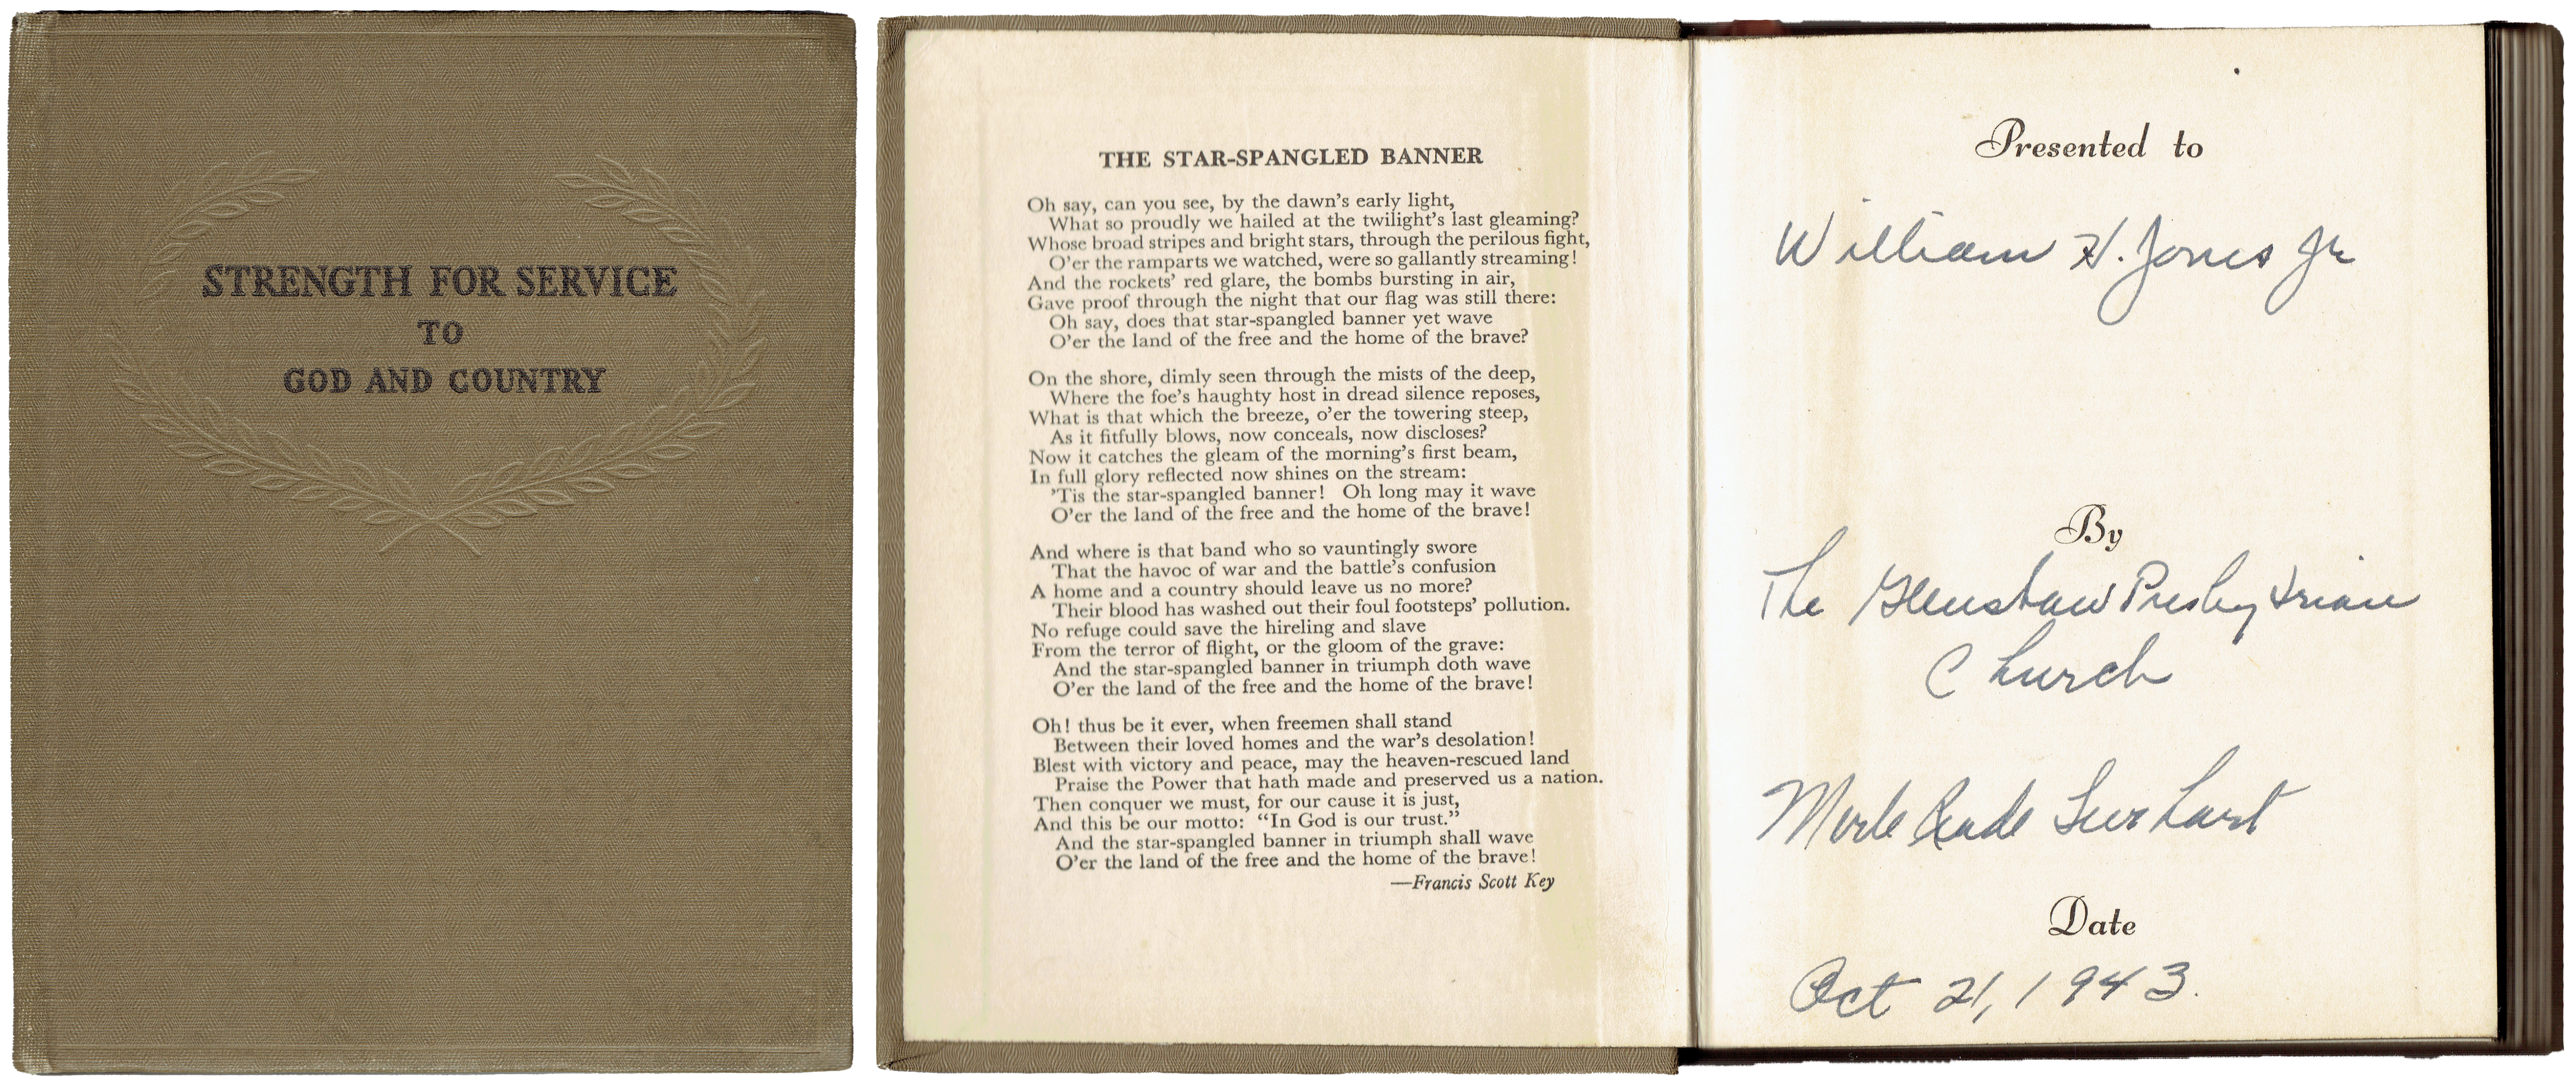 STRENGTH FOR SERVICE
TO
GOD AND COUNTRY
THE STAR-SPANGLED BANNER
Oh say, can you see, by the dawn's early light,
What so proudly we hailed at the twilight's last gleaming?
Whose broad stripes and bright stars, through the perilous fight,
O'er the ramparts we watched, were so gallantly streaming!
And the rockets' red glare, the bombs bursting in air,
Gave proof through the night that our flag was still there:
Oh say, does that star-spangled banner yet wave
O'er the land of the free and the home of the brave?
On the shore, dimly seen through the mists of the deep,
Where the foe's haughty host in dread silence reposes,
What is that which the breeze, o'er the towering steep,
As it fitfully blows, now conceals, now discloses?
Now it catches the gleam of the morning's first beam,
In full glory reflected now shines on the stream:
'Tis the star-spangled banner! Oh long may it wave
O'er the land of the free and the home of the brave!
And where is that band who so vauntingly swore
That the havoc of war and the battle's confusion
A home and a country should leave us no more?
Their blood has washed out their foul footsteps' pollution.
No refuge could save the hireling and slave
From the terror of flight, or the gloom of the grave:
And the star-spangled banner in triumph doth wave
O'er the land of the free and the home of the brave!
Oh! thus be it ever, when freemen shall stand
Between their loved homes and the war's desolation!
Blest with victory and peace, may the heaven-rescued land
Praise the Power that hath made and preserved us a nation.
Then conquer we must, for our cause it is just,
And this be our motto: “In God is our trust.”
And the star-spangled banner in triumph shall wave
O'er the land of the free and the home of the brave!
—Francis Scott Key
Presented to
William H. Jones Jr
By
The Glenshaw Presbyterian
Church
Merle
Date
Oct 21, 1943.